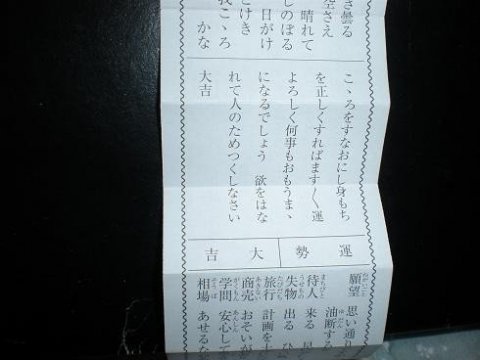 き曇る
空さえ
晴れて
しのぼる
日がけ
どけき
我こゝろ
かな
こゝろをすなおにし身もち
を正しくすればます〳〵運
よろしく何事もおもうまゝ
になるでしょう　欲をはな
れて人のためつくしなさい
大吉
運勢
大吉
願望 思い通り
油断する
待人 来る
失物 出る ひ
旅行 計画を
商売 おそいが
学問 安心して
相場 あせるな